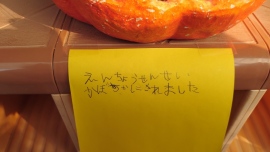 えんちょうせんせい
かぼちゃにされました